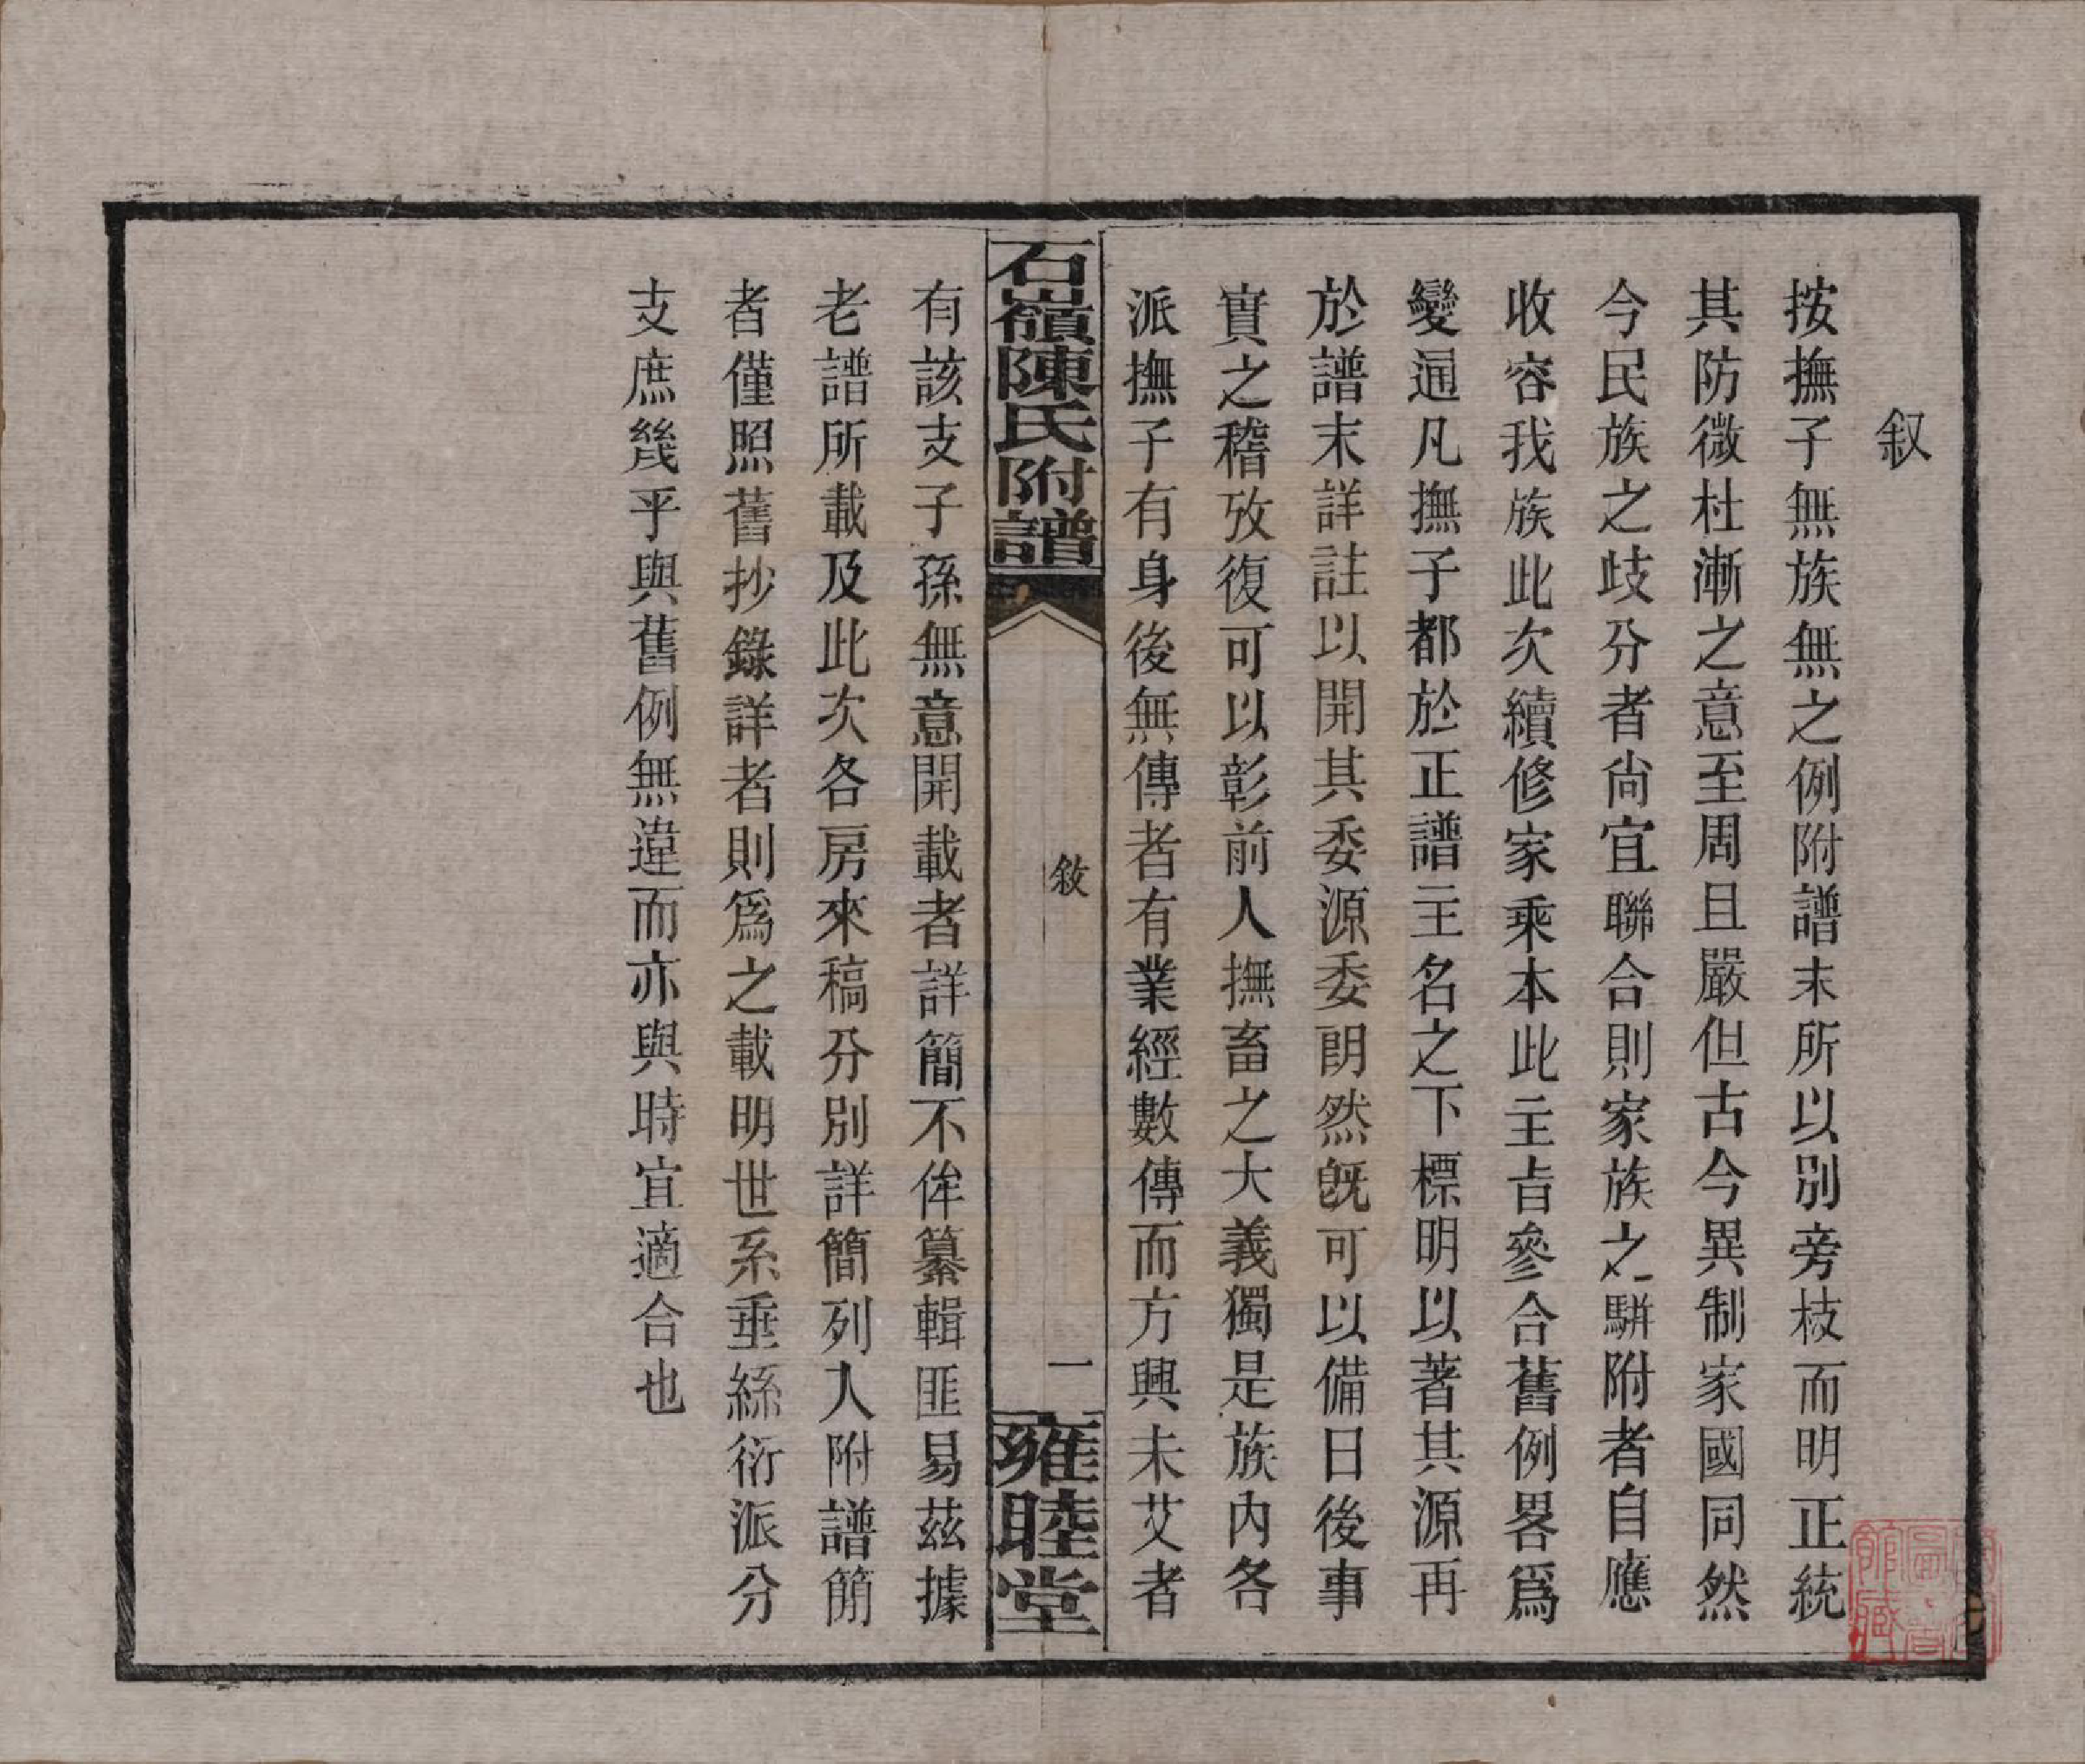 叙
按撫子無族無之例附譜末所以別旁枝而明正統
其防微杜漸之意至周且嚴但古今異制家國同然
今民族之歧分者尙宜聯合則家族之駢附者自應
收容我族此次續修家乘本此主旨參合舊例畧爲
變通凡撫子都於正譜主名之下標明以著其源再
於譜末詳註以開其委源委朗然旣可以備日後事
實之稽攷復可以彰前人撫畜之大義獨是族內各
派撫子有身後無傳者有業經數傳而方興未艾者
石嶺陳氏附譜
敘
一
雍睦堂
有該支子孫無意開載者詳簡不侔纂輯匪易茲據
老譜所載及此次各房來稿分別詳簡列入附譜簡
者僅照舊抄錄詳者則爲之載明世系垂絲衍派分
支庶幾乎與舊例無違而亦與時宜適合也